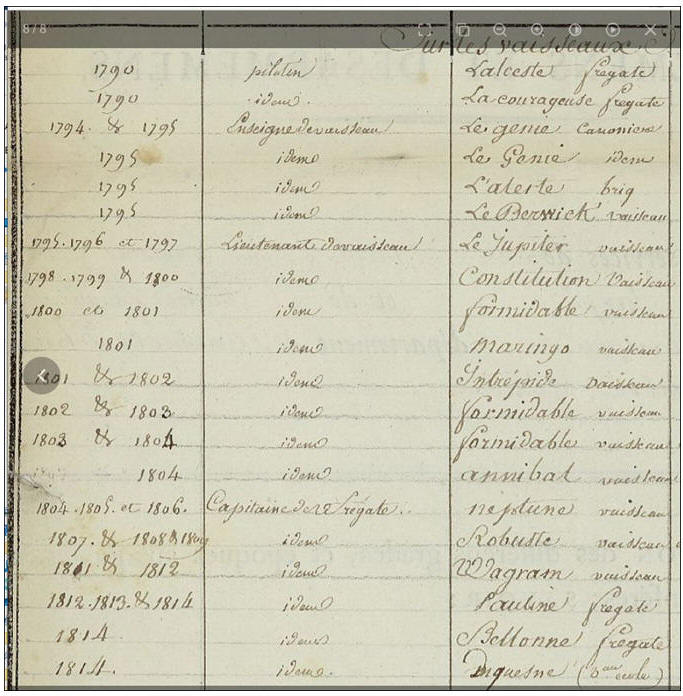 8/8
Sur les vaisseaux
1790 pilotin L'alceste fregate
1790 idem. La courageuse fregate
1794. & 1795 Enseigne de vaisseau Le genie Canoniere
1795 idem Le Genie idem
1795 idem L'aleste brig
1795 idem Le Berwick vaisseau
1795. 1796 et 1797 Lieutenant de vaisseau Le Jupiter vaisseau
1798. 1799 & 1800 idem Constitution Vaisseau
1800 et 1801 idem formidable vaisseau
1801 idem maringo vaisseau
1801 & 1802 idem Intrépide Vaisseau
1802 & 1803 idem formidable vaisseau
1803 & 1804 idem formidable vaisseau
1804 idem annibal vaisseau
1804. 1805. et 1806. Capitaine de frégate. neptune vaisseau
1807. & 1808 & 1809 idem Robuste vaisseau
1811 & 1812 idem Wagram vaisseau
1812. 1813. & 1814 idem Pauline fregate
1814 idem Bellonne fregate
1814. idem. Duquesne (Vau école)